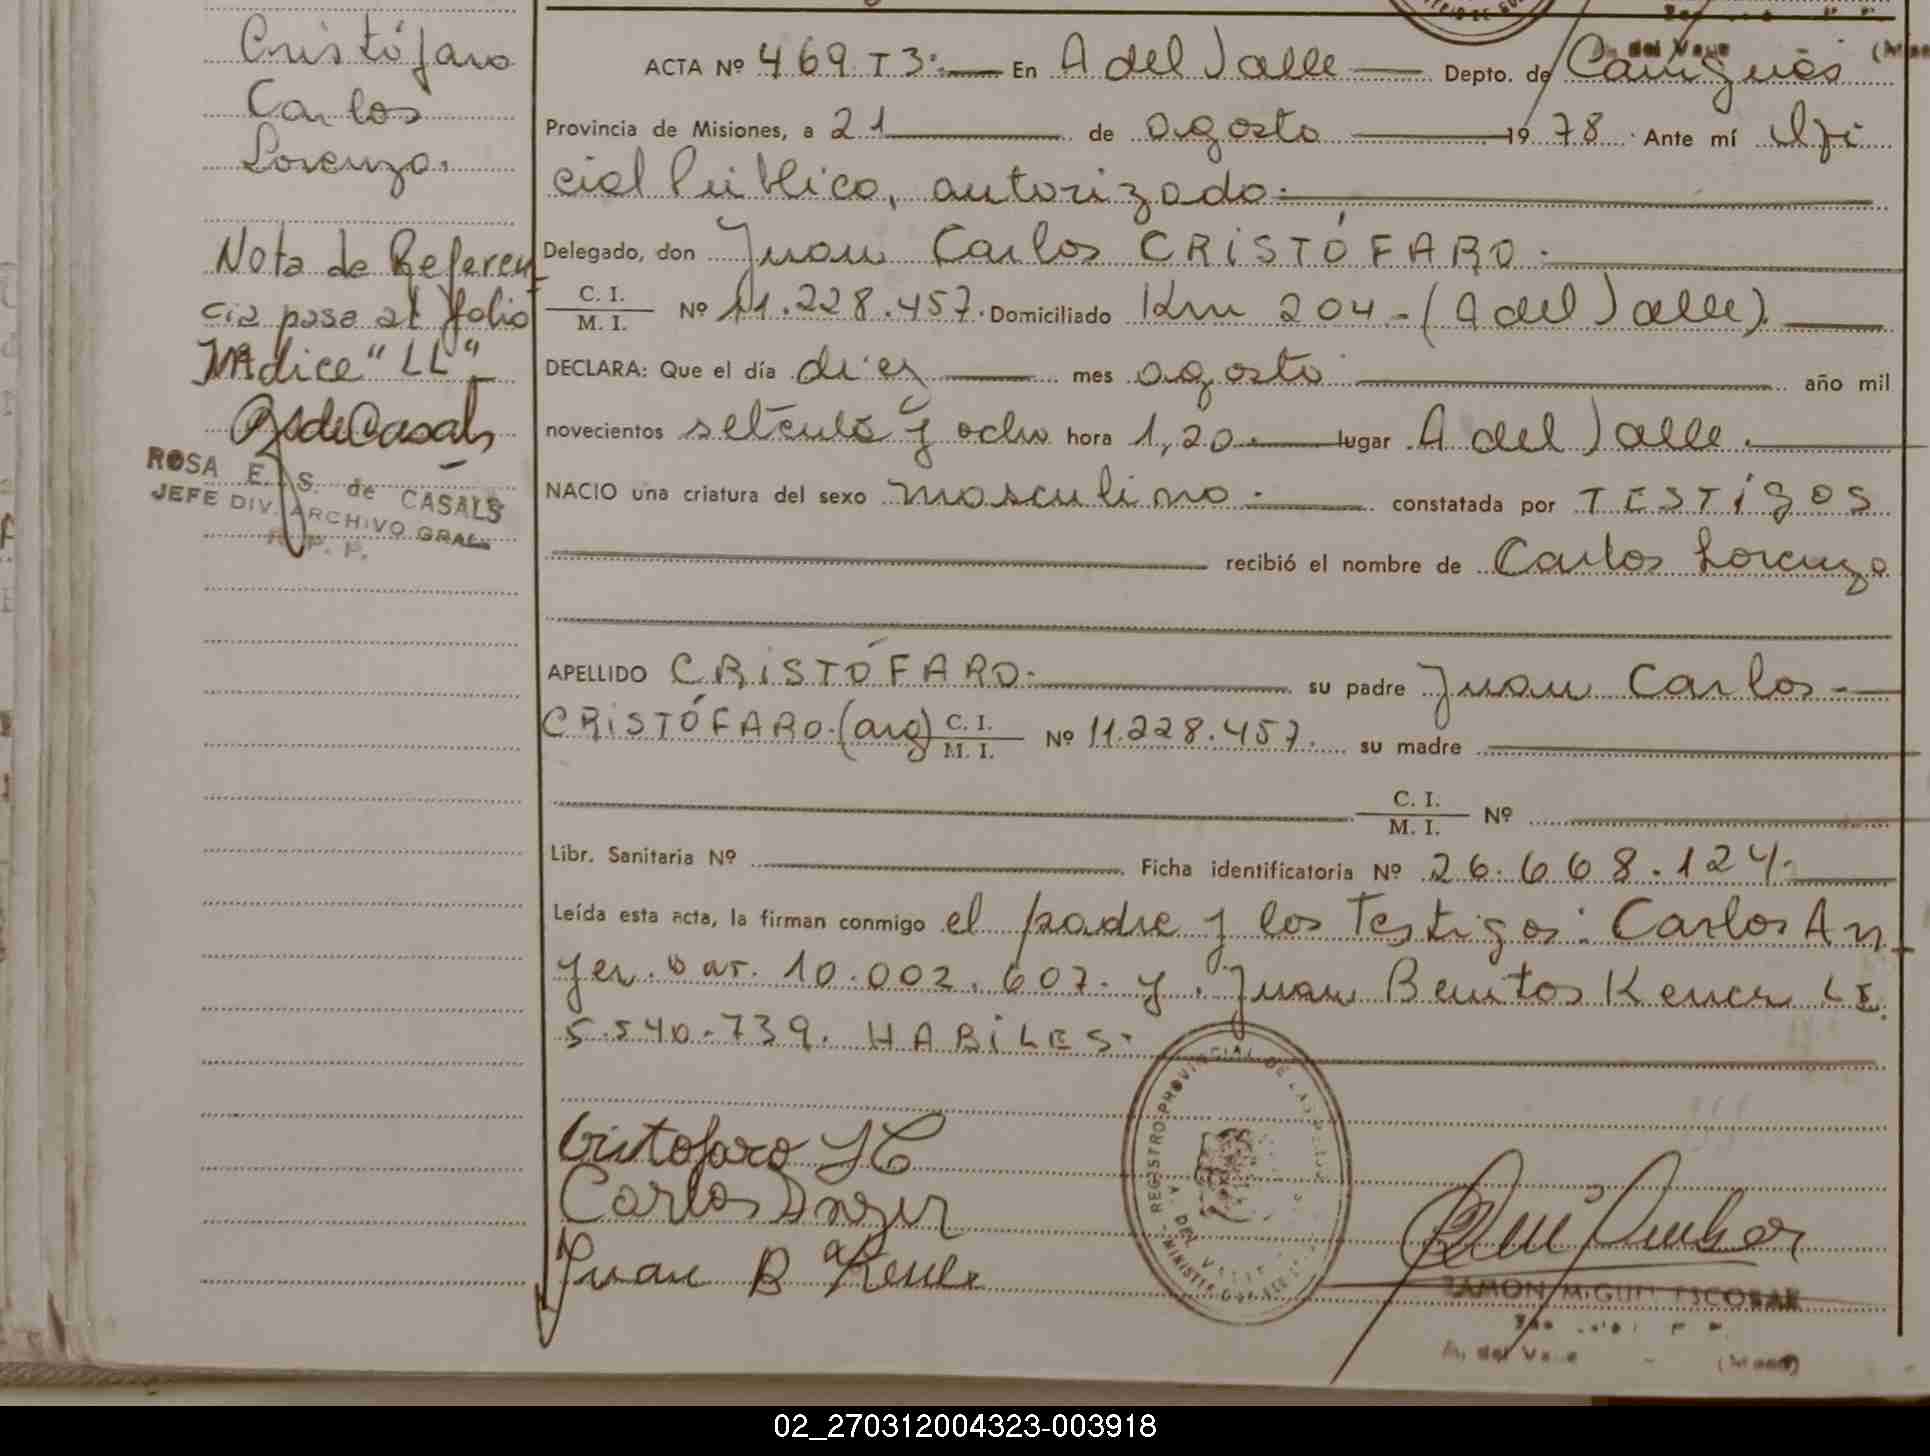 Cristófaro
Carlos
Lorenzo.
Nota de Referen
cia pasa al folio
INdice "LL"
ROSA E. S. de CASALS
JEFE DIV. ARCHIVO GRAL.
R. P. P.
ACTA Nº 469 T3. En A del Valle Depto. de Cainguás
Provincia de Misiones, a 21 de agosto 1978. Ante mí Ofi
cial Público, autorizado.
Delegado, don Juan Carlos CRISTÓFARO.
C. I.
M. I. Nº 11.228.457. Domiciliado Km 204 - (A del Valle).
DECLARA: Que el día diez mes agosto año mil
novecientos setenta y ocho hora 1,20. lugar A del Valle.
NACIO una criatura del sexo masculino. constatada por TESTigos
recibió el nombre de Carlos Lorenzo
APELLIDO CRISTÓFARO. su padre Juan Carlos
CRISTÓFARO. (arg) C. I.
M. I. Nº 11.228.457. su madre
C. I.
M. I. Nº
Libr. Sanitaria Nº Ficha identificatoria Nº 26.668.124.
Leída esta acta, la firman conmigo el padre y los Testigos: Carlos An
ger. 10.002.607. y Juan Benitos LE.
5.540.739. HABILES.
Cristofaro JC
Carlos Anger
Juan B
REGISTRO PROVINCIAL DE LAS
A DEL VALLE
RAMON MIGUEL ESCOBAR
A. del Valle (Mnes)
02_270312004323-003918